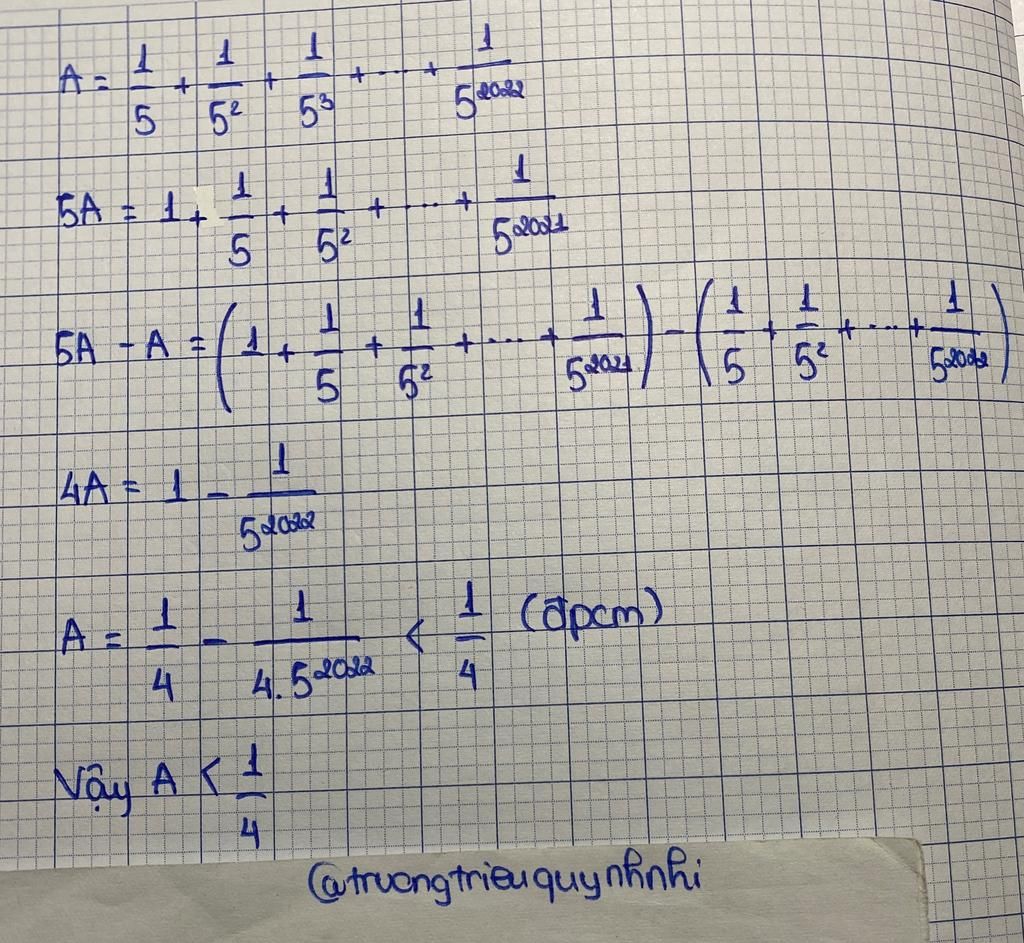 A = 1/5 + 1/5² + 1/5³ + ... + 1/5²⁰²²
5A = 1 + 1/5 + 1/5² + ... + 1/5²⁰²¹
5A - A = (1 + 1/5 + 1/5² + ... + 1/5²⁰²¹) - (1/5 + 1/5² + ... + 1/5²⁰²²)
4A = 1 - 1/5²⁰²²
A = 1/4 - 1/(4.5²⁰²²) < 1/4 (đpcm)
Vậy A < 1/4
@truongtrieuquynhnhi